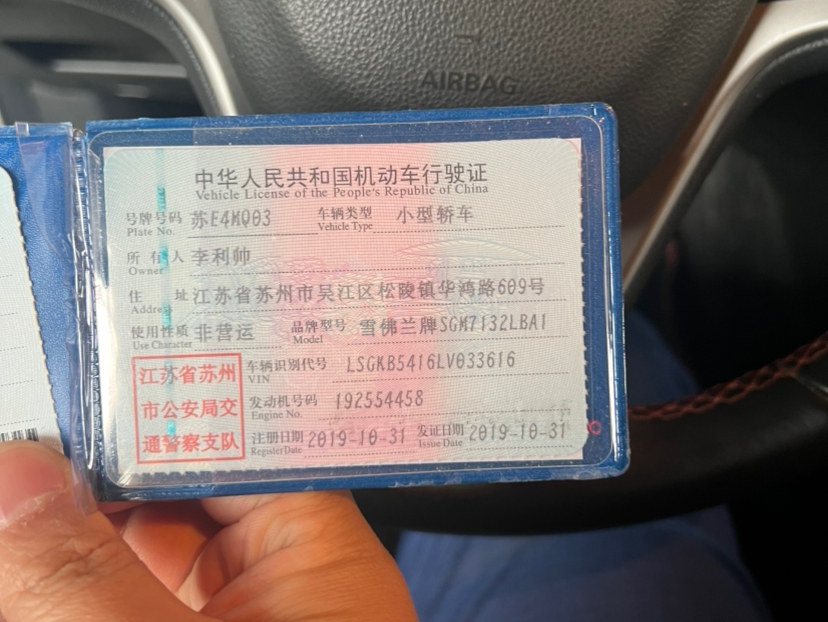 AIRBAG
中华人民共和国机动车行驶证
Vehicle License of the People's Republic of China
号牌号码 苏E4MQ03 车辆类型 小型轿车
Plate No. Vehicle Type
所有人 李利帅
Owner
住址 江苏省苏州市吴江区松陵镇华鸿路609号
Address
使用性质 非营运 品牌型号 雪佛兰牌SGM7132LBA1
Use Character Model
江苏省苏州 车辆识别代号 LSGKB5416LV033616
VIN
市公安局交 发动机号码 192554458
Engine No.
通警察支队 注册日期 2019-10-31 发证日期 2019-10-31
Register Date Issue Date